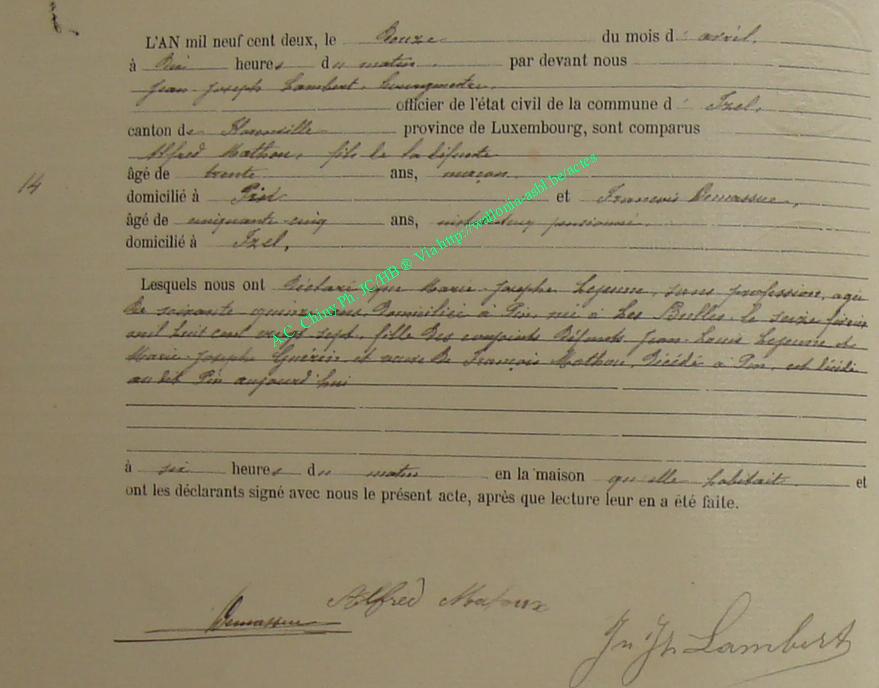 L'AN mil neuf cent deux, le douze du mois d' avril,
à dix heures du matin par devant nous
Jean Joseph Lambert, bourgmestre,
officier de l'état civil de la commune d' Izel,
canton de Florenville province de Luxembourg, sont comparus
Alfred Mathon, fils de la défunte
âgé de trente ans, maçon,
14
domicilié à Pin et François Demasseux,
âgé de cinquante cinq ans, instituteur pensionné,
domicilié à Izel,
Lesquels nous ont déclaré que Marie Josephe Lejeune, sans profession, agée
de soixante quinze ans domiciliée à Pin, née à Les Bulles le seize février
mil huit cent vingt sept, fille des conjoints défunts Jean Louis Lejeune et
Marie Josephe Guérin et veuve de François Mathon, décédé à Pin, est décédée
au dit Pin aujourd'hui
à six heures du matin en la maison qu'elle habitait et
ont les déclarants signé avec nous le présent acte, après que lecture leur en a été faite.
Alfred
Jn Jh Lambert
A.C. Chiny Ph. JC/HB ® Via http://wallonia-asbl.be/actes